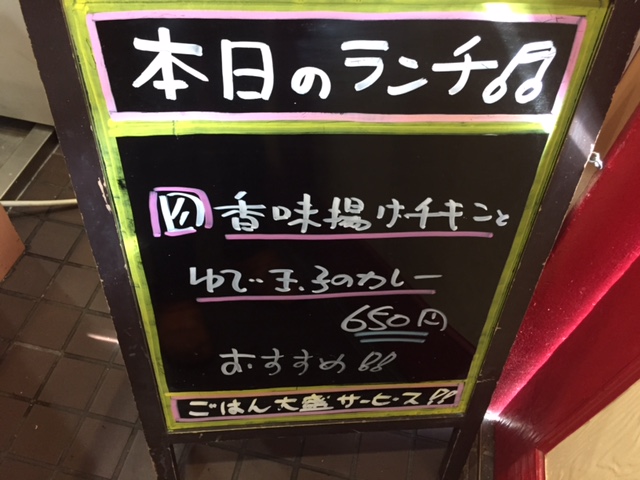 本日のランチ♫
香味揚げチキンと
ゆで玉子のカレー
650円
おすすめ!!
ごはん大盛サービス!!